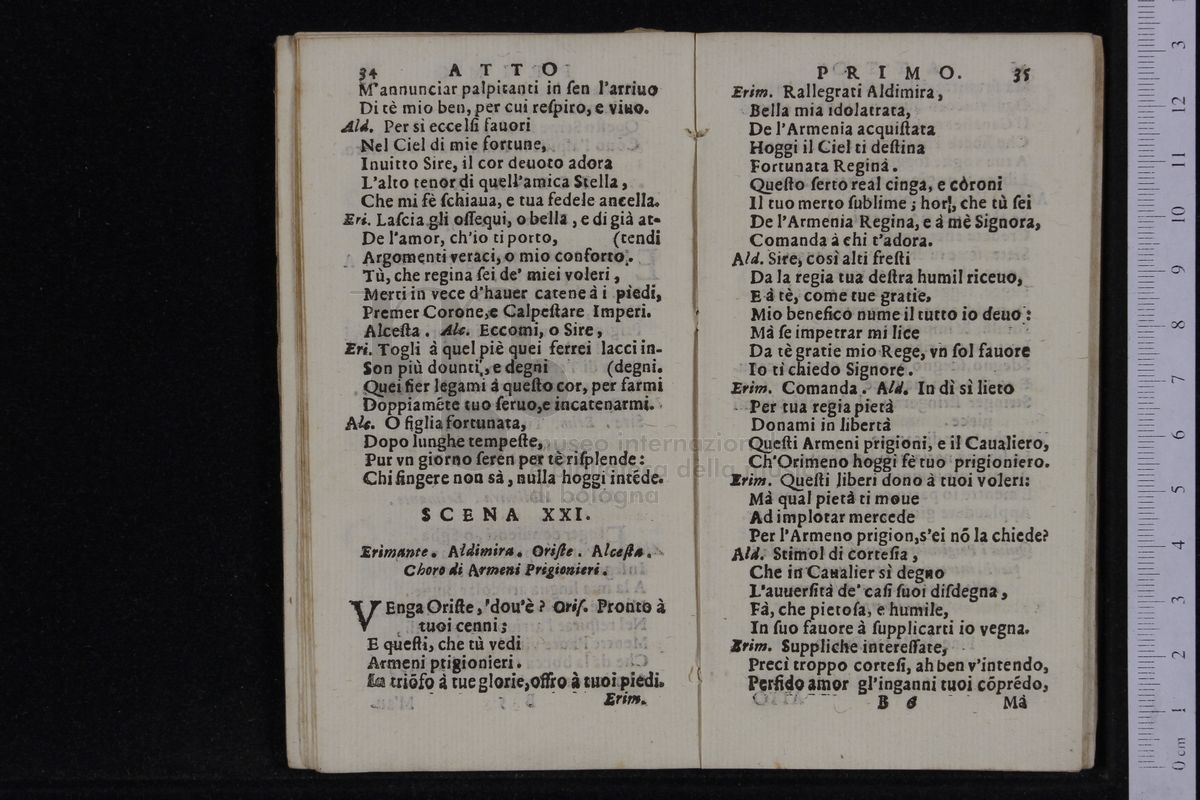 34 ATTO
M'annunciar palpitanti in ſen l'arriuo
Di tè mio ben, per cui reſpiro, e viuo.
Ald. Per sì eccelſi fauori
Nel Ciel di mie fortune,
Inuitto Sire, il cor deuoto adora
L'alto tenor di quell'amica Stella,
Che mi fè ſchiaua, e tua fedele ancella.
Eri. Laſcia gli oſſequi, o bella, e di già at-
De l'amor, ch'io ti porto, (tendi
Argomenti veraci, o mio conforto.
Tù, che regina ſei de' miei voleri,
Merti in vece d'hauer catene à i piedi,
Premer Corone, e Calpeſtare Imperi.
Alceſta. Alc. Eccomi, o Sire,
Eri. Togli à quel piè quei ferrei lacci in-
Son più dounti, e degni (degni.
Quei fier legami à queſto cor, per farmi
Doppiaméte tuo ſeruo, e incatenarmi.
Alc. O figlia fortunata,
Dopo lunghe tempeſte,
Pur vn giorno ſeren per tè riſplende:
Chi fingere non sà, nulla hoggi intéde.
SCENA XXI.
Erimante. Aldimira. Oriſte. Alceſta.
Choro di Armeni Prigionieri.
VEnga Oriſte, dou'è? Oriſ. Pronto à
tuoi cenni;
E queſti, che tù vedi
Armeni prigionieri.
In triõfo à tue glorie, offro à tuoi piedi.
Erim.
PRIMO. 35
Erim. Rallegrati Aldimira,
Bella mia idolatrata,
De l'Armenia acquiſtata
Hoggi il Ciel ti deſtina
Fortunata Reginà.
Queſto ſerto real cinga, e còroni
Il tuo merto ſublime; hor, che tù ſei
De l'Armenia Regina, e à mè Signora,
Comanda à chi t'adora.
Ald. Sire, così alti freſti
Da la regia tua deſtra humil riceuo,
E à tè, come tue gratie,
Mio benefico nume il tutto io deuo:
Mà ſe impetrar mi lice
Da tè gratie mio Rege, vn ſol fauore
Io ti chiedo Signore.
Erim. Comanda. Ald. In dì sì lieto
Per tua regia pietà
Donami in libertà
Queſti Armeni prigioni, e il Caualiero,
Ch'Orimeno hoggi fè tuo prigioniero.
Erim. Queſti liberi dono à tuoi voleri:
Mà qual pietà ti moue
Ad implotar mercede
Per l'Armeno prigion, s'ei nõ la chiede?
Ald. Stimol di corteſia,
Che in Caualier sì degno
L'auuerſità de' caſi ſuoi diſdegna,
Fà, che pietoſa, e humile,
In ſuo fauore à ſupplicarti io vegna.
Erim. Suppliche intereſſate,
Preci troppo corteſi, ah ben v'intendo,
Perfido amor gl'inganni tuoi cõprédo,
B 6 Mà
museo internazionale
della musica
di bologna